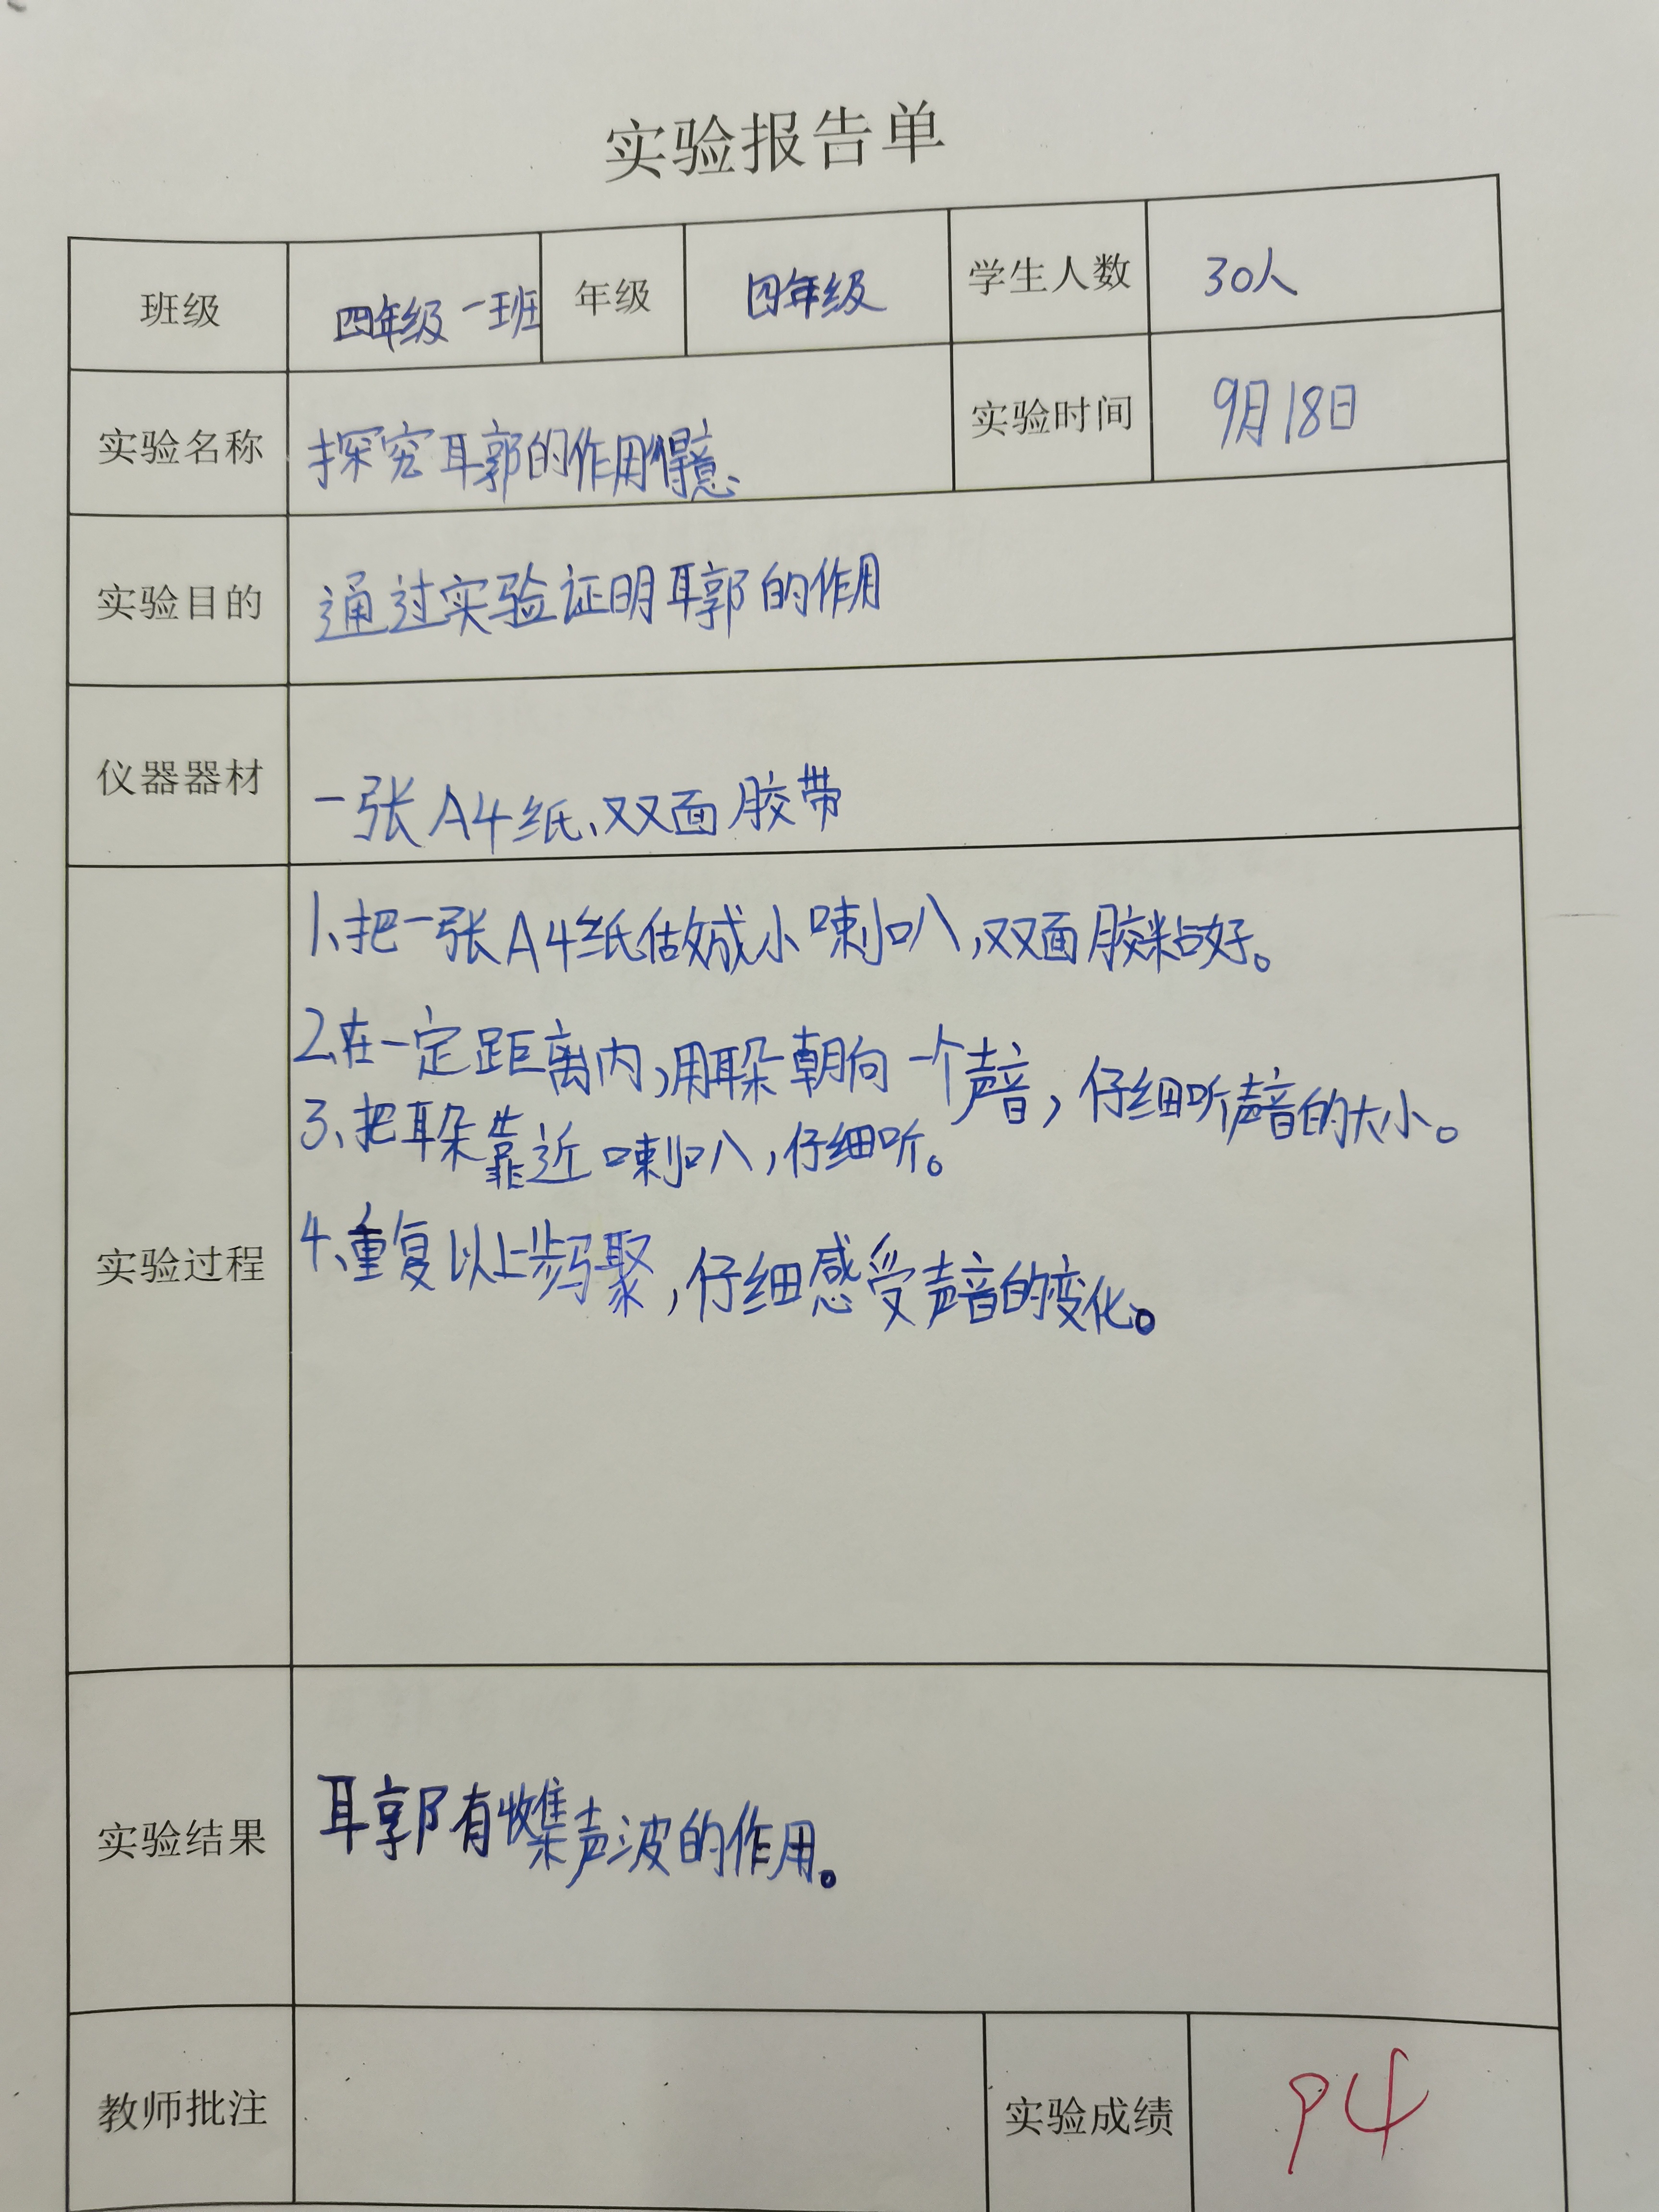 实验报告单
班级 四年级一班 年级 四年级 学生人数 30人
实验名称 探究耳郭的作用 实验时间 9月18日
实验目的 通过实验证明耳郭的作用
仪器器材 一张A4纸、双面胶带
实验过程
1、把一张A4纸做成小喇叭,双面胶粘好。
2、在一定距离内,用耳朵朝向一个声音,仔细听声音的大小。
3、把耳朵靠近喇叭,仔细听。
4、重复以上步骤,仔细感受声音的变化。
实验结果 耳郭有收集声波的作用。
教师批注 实验成绩 94